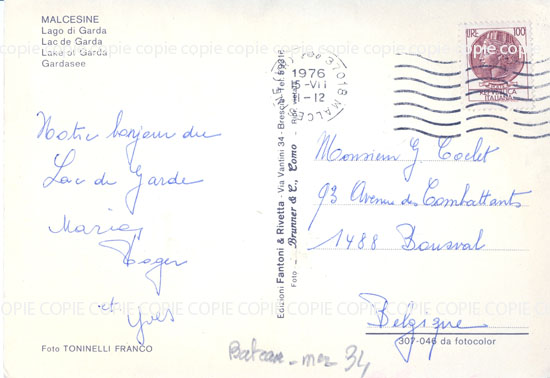 MALCESINE
Lago di Garda
Lac de Garda
Lake of Garda
Gardasee
COPIE COPIE COPIE COPIE COPIE COPIE COPIE COPIE
LIRE 100
REPUBBLICA
ITALIANA
37018 MALCESINE
1976
15-VII
11-12
Notre bonjour du
Lac de Garde
Maria,
Roger
et
Yves
Monsieur G Coclet
93 Avenue des Combattants
1488 Bousval
Belgique
Edizioni Fantoni & Rivetta - Via Vantini 34 - Brescia - Tel. 59312
Foto - Brunner & C., Como -
COPIE COPIE COPIE COPIE COPIE COPIE COPIE COPIE
Foto TONINELLI FRANCO
307-046 da fotocolor
Bateaux - mer 34